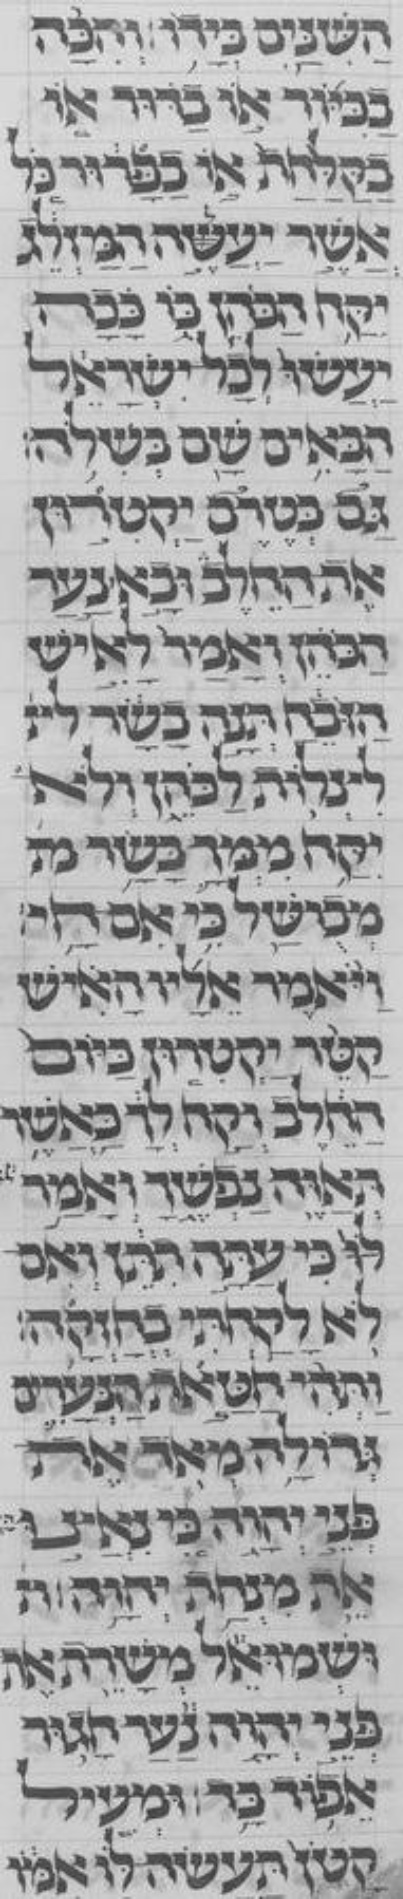 הַשִּׁנַּיִם בְּיָדוֹ׃ וְהִכָּה
בַכִּיּוֹר אוֹ בַדּוּד אוֹ
בַקַּלַּחַת אוֹ בַפָּרוּר כֹּל
אֲשֶׁר יַעֲשֶׂה הַמַּזְלֵג
יִקַּח הַכֹּהֵן בּוֹ כָּכָה
יַעֲשׂוּ לְכָל יִשְׂרָאֵל
הַבָּאִים שָׁם בְּשִׁלֹה׃
גַּם בְּטֶרֶם יַקְטִרוּן
אֶת הַחֵלֶב וּבָא נַעַר
הַכֹּהֵן וְאָמַר לָאִישׁ
הַזֹּבֵחַ תְּנָה בָשָׂר לי
לִצְלוֹת לַכֹּהֵן וְלֹא
יִקַּח מִמְּךָ בָּשָׂר מ
מְבוּשָּׁל כִּי אִם חָי׃
וַיֹּאמֶר אֵלָיו הָאִישׁ
קַטֵּר יַקְטִרוּן כַּיּוֹם
הַחֵלֶב וְקַח לְךָ כַּאֲשֶׁר
תְּאַוֶּה נַפְשֶׁךָ וְאָמַר
לוֹ כִּי עַתָּה תִתֵּן וְאִם
לֹא לָקַחְתִּי בְחָזְקָה׃
וַתְּהִי חַטַּאת הַנְּעָרִים
גְּדוֹלָה מְאֹד אֶת
פְּנֵי יְהוָה כִּי נִאֲצוּ
אֵת מִנְחַת יְהוָה׃
וּשְׁמוּאֵל מְשָׁרֵת אֶת
פְּנֵי יְהוָה נַעַר חָגוּר
אֵפוֹד בָּד׃ וּמְעִיל
קָטֹן תַּעֲשֶׂה לּוֹ אִמּוֹ